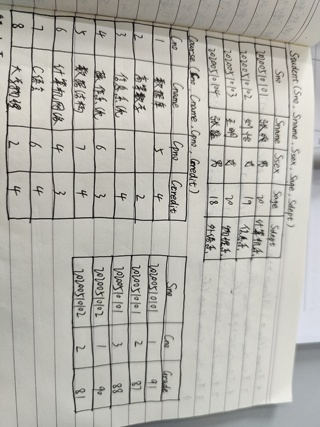 Student (Sno, Sname, Ssex, Sage, Sdept)
Sno Sname Ssex Sage Sdept
202005/0101 张 男 20 计算机系
202005/0102 女 19 信息系
202005/0103 王明 女 20 物理系
202005/0104 张 男 18 外语系
Course (Cno, Cname, Cpno, Ccredit)
Cno Cname Cpno Ccredit
1 数据库 5 4
2 高等数学 2
3 信息系统 1 4
4 操作系统 6 3
5 数据结构 7 4
6 计算机网络 4 3
7 C语言 6 4
8 大学物理 2 4
Sno Cno Grade
202005/0101 1 91
202005/0101 2 87
202005/0101 3 88
202005/0102 1 90
202005/0102 2 81